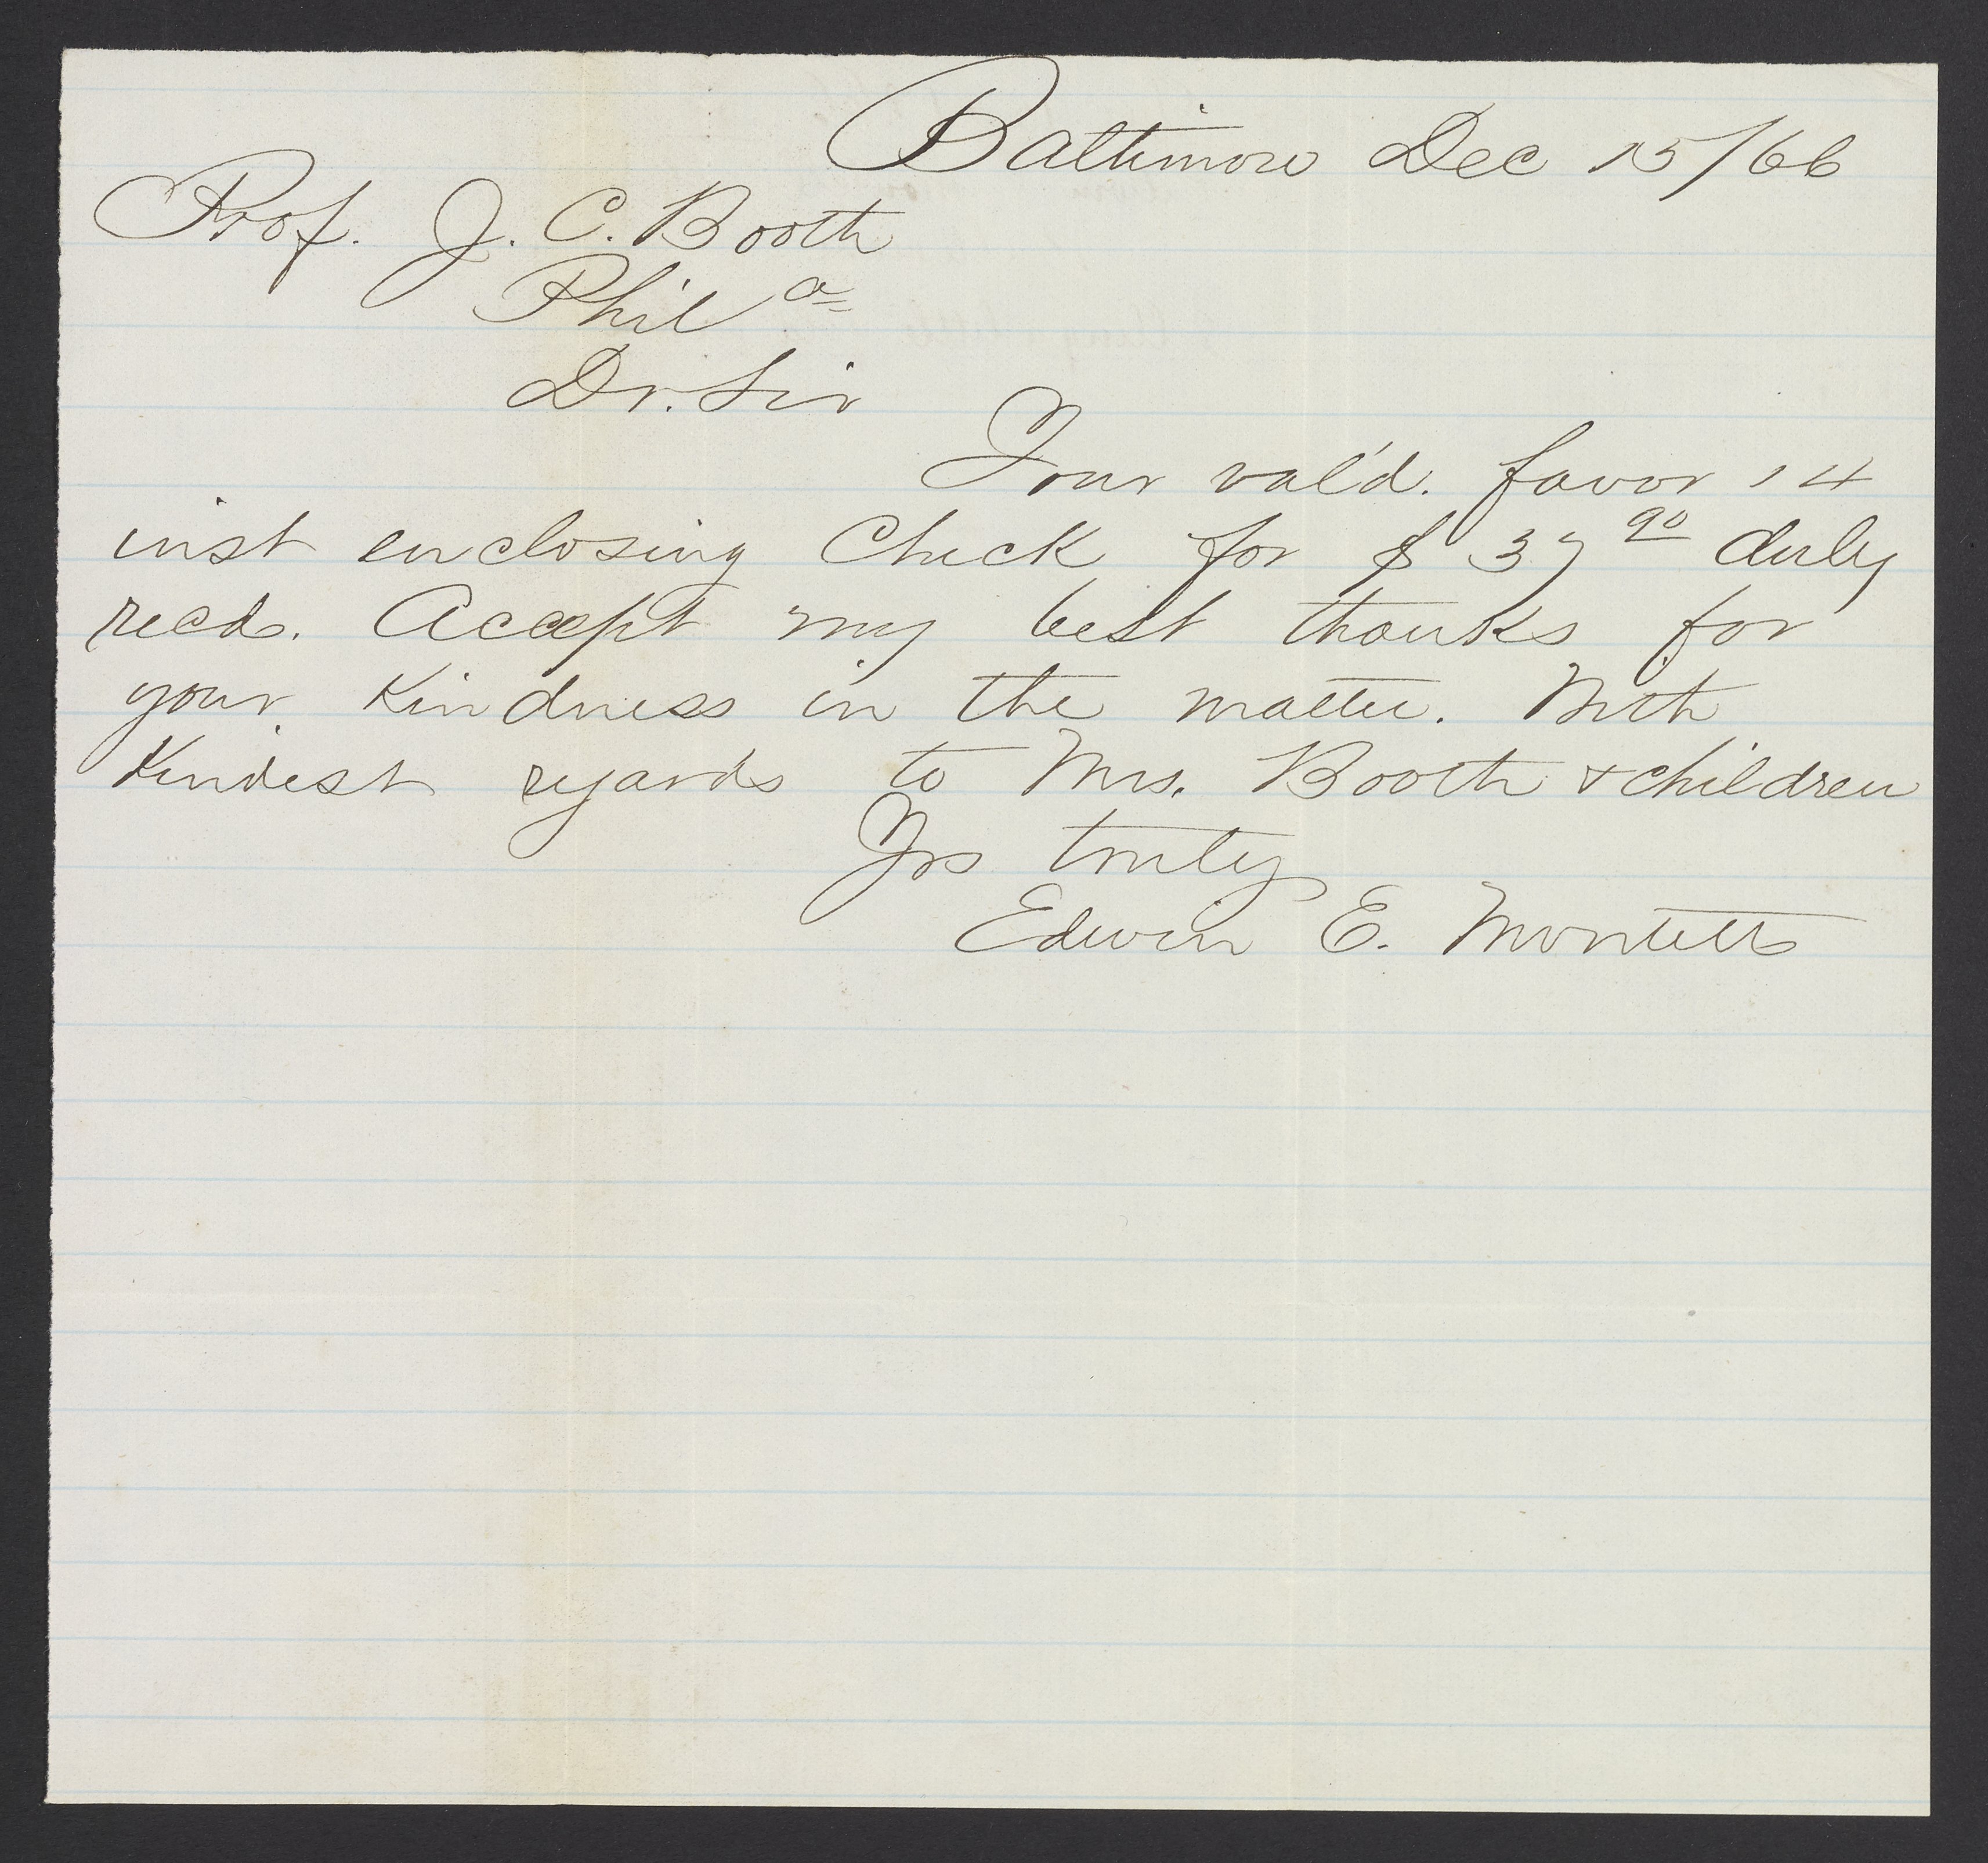 Baltimore Dec 15/66
Prof. J. C. Booth
Phila
Dr. Sir
Your val'd. favor 14
inst enclosing Check for $ 37 90 duly
recd. Accept my best thanks for
your Kindness in the matter. With
Kindest regards to Mrs. Booth & children
Yrs truly
Edwin E.